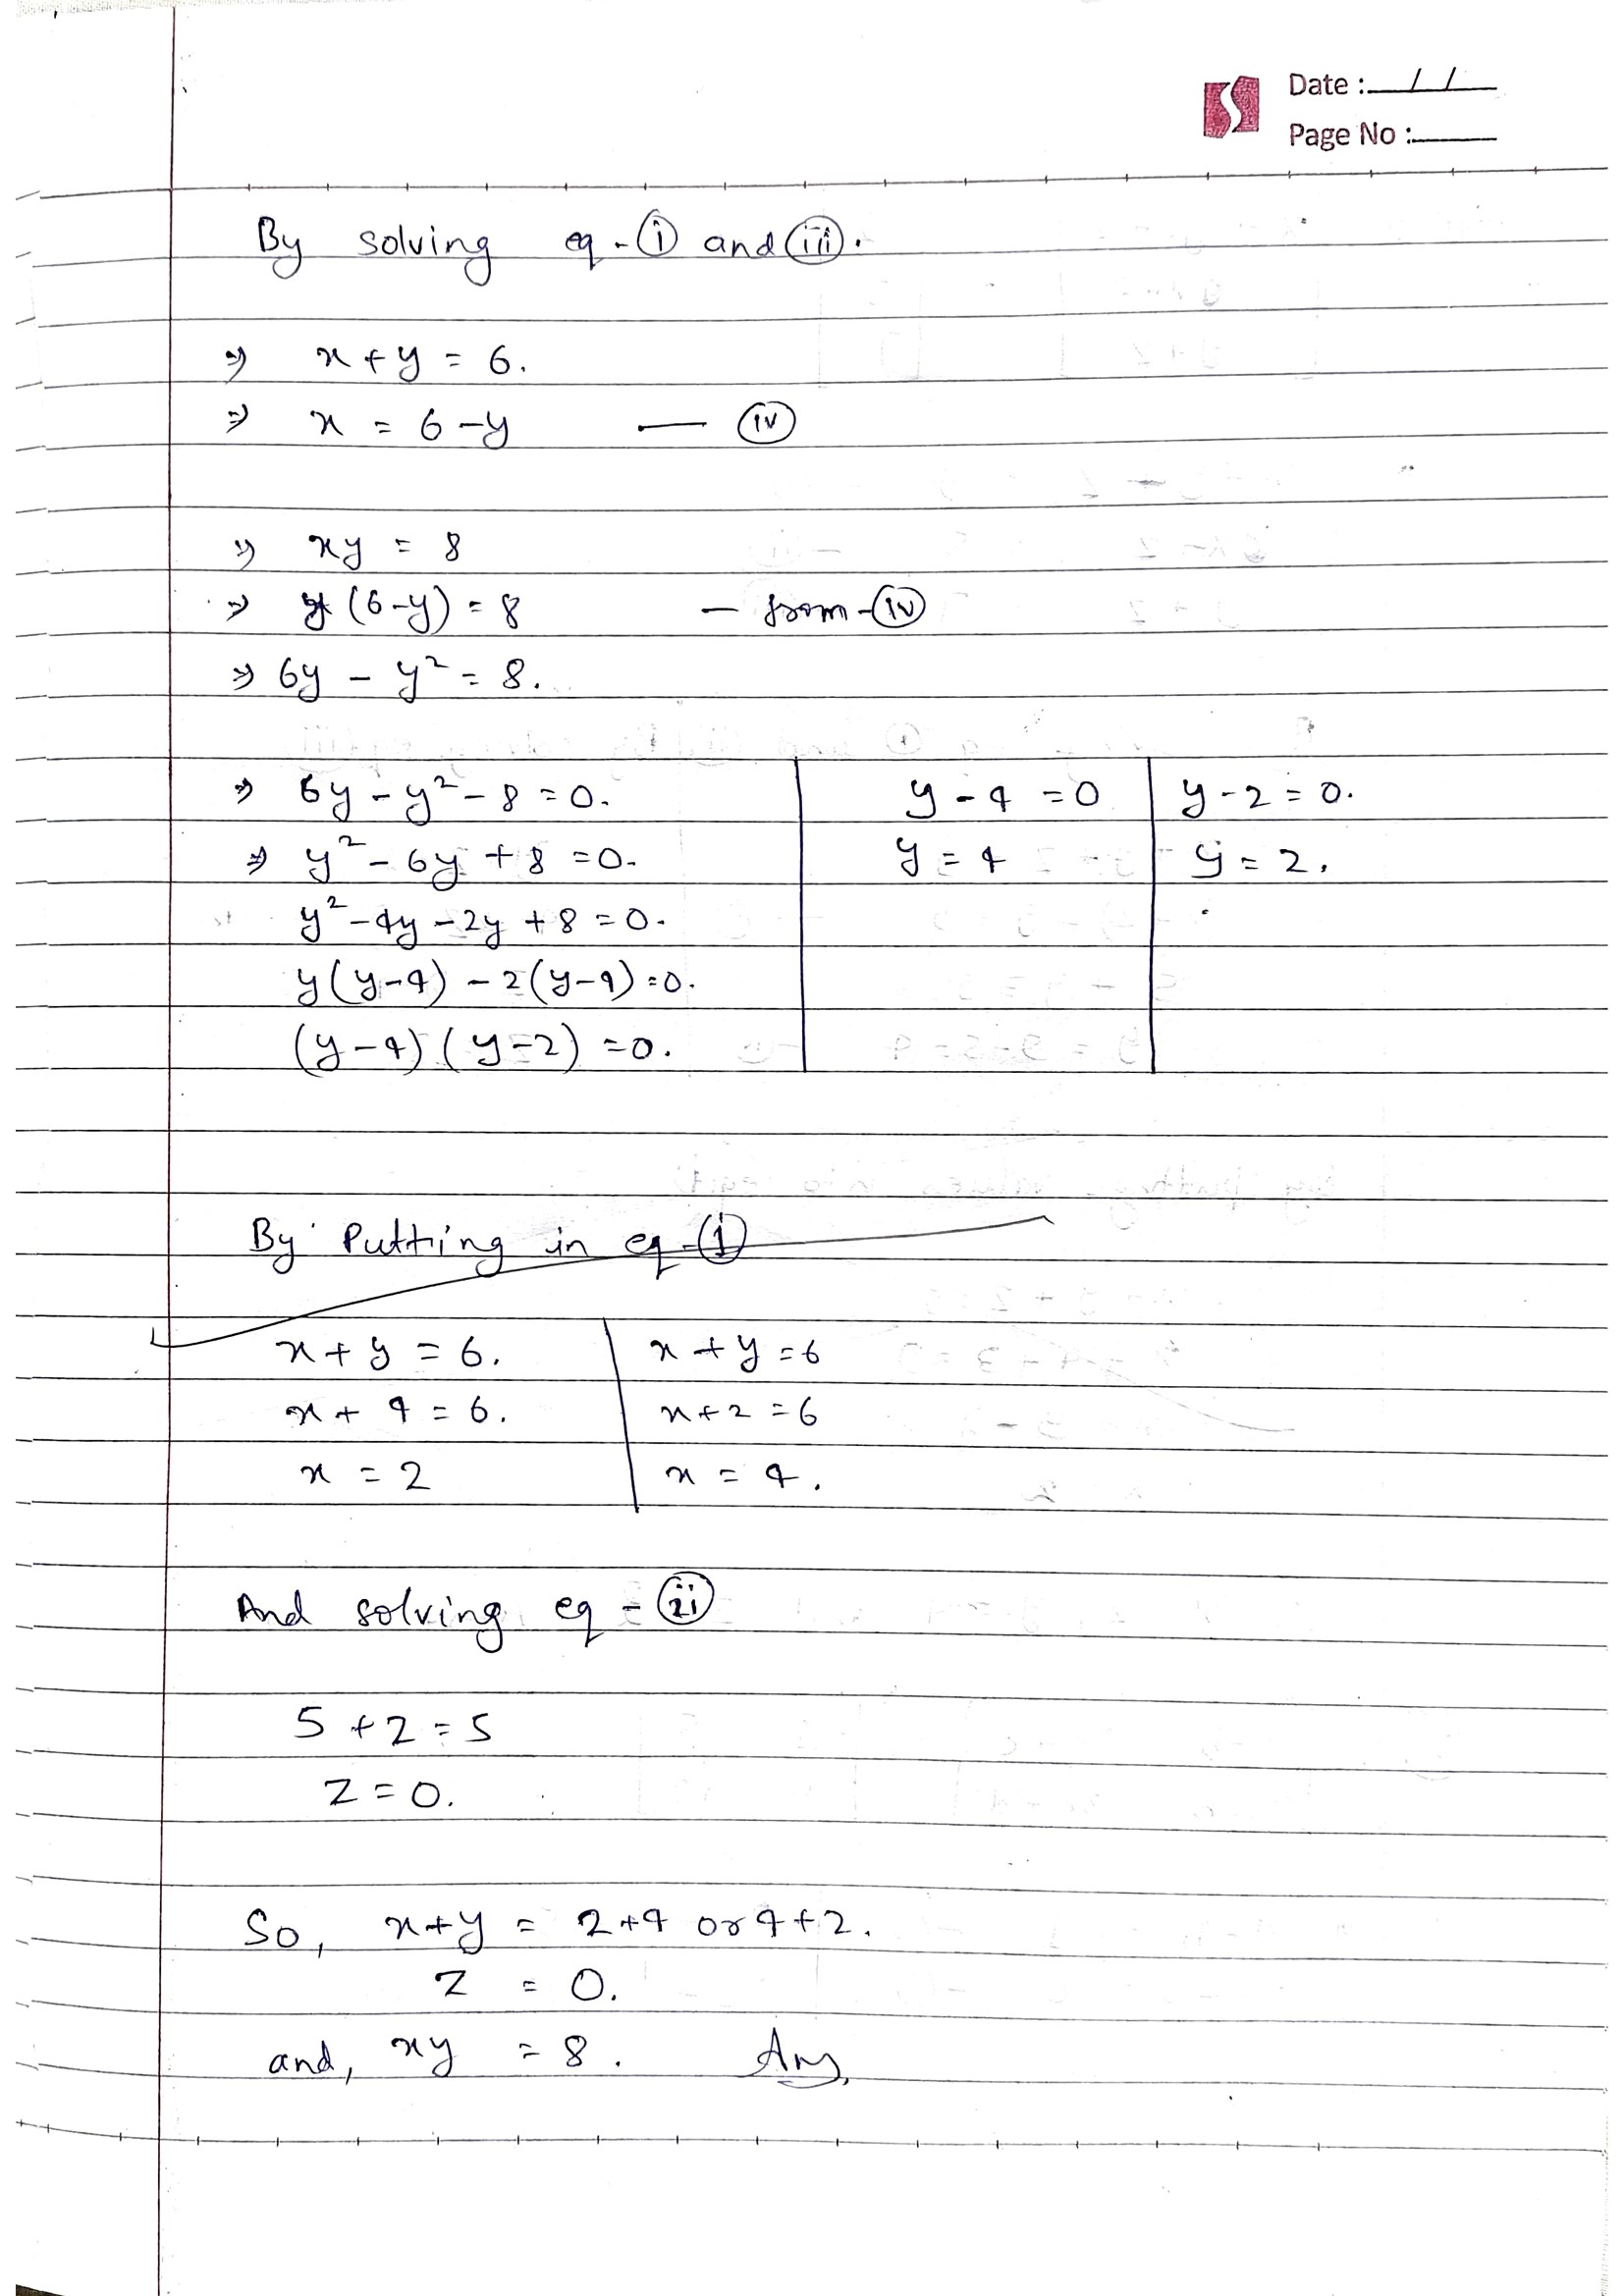 Date : / /
Page No :
By solving eq - (i) and (iii).
⇒ x + y = 6.
⇒ x = 6 - y — (iv)
⇒ xy = 8
⇒ y (6-y) = 8 - from - (iv)
⇒ 6y - y² = 8.
⇒ 6y - y² - 8 = 0. y - 4 = 0 y - 2 = 0.
⇒ y² - 6y + 8 = 0. y = 4 y = 2.
y² - 4y - 2y + 8 = 0.
y(y-4) - 2(y-4) = 0.
(y-4) (y-2) = 0.
By Putting in eq - (i)
x + y = 6. x + y = 6
x + 4 = 6. x + 2 = 6
x = 2 x = 4.
And solving eq - (ii)
5 + z = 5
z = 0.
So, x+y = 2+4 or 4+2.
z = 0.
and, xy = 8. Ans.